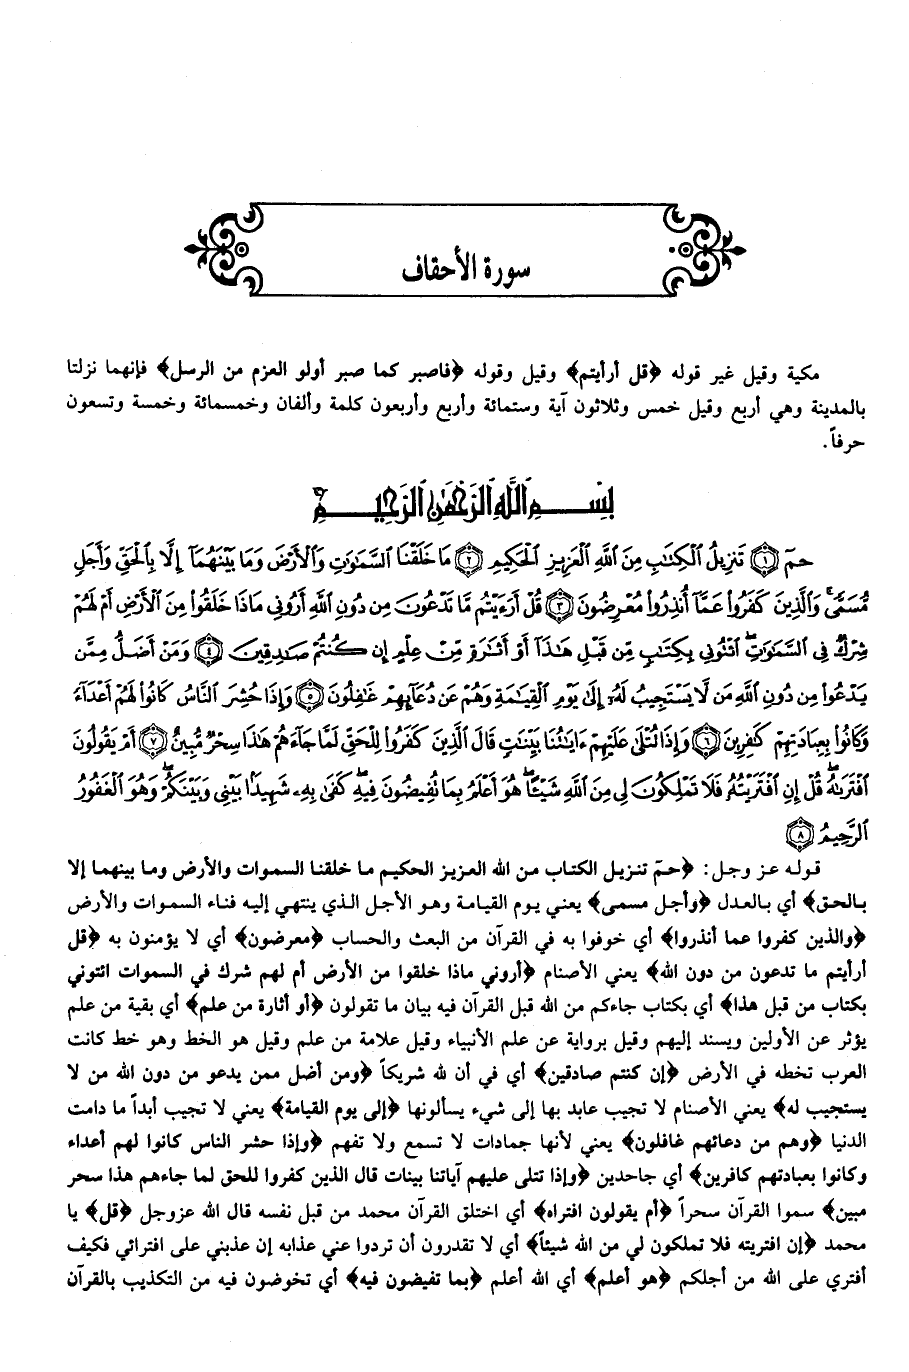 سورة الأحقاف
مكية وقيل غير قوله ﴿قل أرأيتم﴾ وقيل وقوله ﴿فاصبر كما صبر أولو العزم من الرسل﴾ فإنهما نزلتا
بالمدينة وهي أربع وقيل خمس وثلاثون آية وستمائة وأربع وأربعون كلمة وألفان وخمسمائة وخمسة وتسعون
حرفاً.
بِسْمِ اللَّهِ الرَّحْمَٰنِ الرَّحِيمِ
حمٓ ﴿١﴾ تَنزِيلُ ٱلْكِتَٰبِ مِنَ ٱللَّهِ ٱلْعَزِيزِ ٱلْحَكِيمِ ﴿٢﴾ مَا خَلَقْنَا ٱلسَّمَٰوَٰتِ وَٱلْأَرْضَ وَمَا بَيْنَهُمَآ إِلَّا بِٱلْحَقِّ وَأَجَلٍ
مُّسَمًّى ۚ وَٱلَّذِينَ كَفَرُوا۟ عَمَّآ أُنذِرُوا۟ مُعْرِضُونَ ﴿٣﴾ قُلْ أَرَءَيْتُم مَّا تَدْعُونَ مِن دُونِ ٱللَّهِ أَرُونِى مَاذَا خَلَقُوا۟ مِنَ ٱلْأَرْضِ أَمْ لَهُمْ
شِرْكٌ فِى ٱلسَّمَٰوَٰتِ ۖ ٱئْتُونِى بِكِتَٰبٍ مِّن قَبْلِ هَٰذَآ أَوْ أَثَٰرَةٍ مِّنْ عِلْمٍ إِن كُنتُمْ صَٰدِقِينَ ﴿٤﴾ وَمَنْ أَضَلُّ مِمَّن
يَدْعُوا۟ مِن دُونِ ٱللَّهِ مَن لَّا يَسْتَجِيبُ لَهُۥٓ إِلَىٰ يَوْمِ ٱلْقِيَٰمَةِ وَهُمْ عَن دُعَآئِهِمْ غَٰفِلُونَ ﴿٥﴾ وَإِذَا حُشِرَ ٱلنَّاسُ كَانُوا۟ لَهُمْ أَعْدَآءً
وَكَانُوا۟ بِعِبَادَتِهِمْ كَٰفِرِينَ ﴿٦﴾ وَإِذَا تُتْلَىٰ عَلَيْهِمْ ءَايَٰتُنَا بَيِّنَٰتٍ قَالَ ٱلَّذِينَ كَفَرُوا۟ لِلْحَقِّ لَمَّا جَآءَهُمْ هَٰذَا سِحْرٌ مُّبِينٌ ﴿٧﴾ أَمْ يَقُولُونَ
ٱفْتَرَىٰهُ ۖ قُلْ إِنِ ٱفْتَرَيْتُهُۥ فَلَا تَمْلِكُونَ لِى مِنَ ٱللَّهِ شَيْـًٔا ۖ هُوَ أَعْلَمُ بِمَا تُفِيضُونَ فِيهِ ۖ كَفَىٰ بِهِۦ شَهِيدًۢا بَيْنِى وَبَيْنَكُمْ ۖ وَهُوَ ٱلْغَفُورُ
ٱلرَّحِيمُ ﴿٨﴾
قوله عز وجل: ﴿حمّ تنزيل الكتاب من الله العزيز الحكيم ما خلقنا السموات والأرض وما بينهما إلا
بالحق﴾ أي بالعدل ﴿وأجل مسمى﴾ يعني يوم القيامة وهو الأجل الذي ينتهي إليه فناء السموات والأرض
﴿والذين كفروا عما أنذروا﴾ أي خوفوا به في القرآن من البعث والحساب ﴿معرضون﴾ أي لا يؤمنون به ﴿قل
أرأيتم ما تدعون من دون الله﴾ يعني الأصنام ﴿أروني ماذا خلقوا من الأرض أم لهم شرك في السموات ائتوني
بكتاب من قبل هذا﴾ أي بكتاب جاءكم من الله قبل القرآن فيه بيان ما تقولون ﴿أو أثارة من علم﴾ أي بقية من علم
يؤثر عن الأولين ويسند إليهم وقيل برواية عن علم الأنبياء وقيل علامة من علم وقيل هو الخط وهو خط كانت
العرب تخطه في الأرض ﴿إن كنتم صادقين﴾ أي في أن لله شريكاً ﴿ومن أضل ممن يدعو من دون الله من لا
يستجيب له﴾ يعني الأصنام لا تجيب عابد بها إلى شيء يسألونها ﴿إلى يوم القيامة﴾ يعني لا تجيب أبداً ما دامت
الدنيا ﴿وهم من دعائهم غافلون﴾ يعني لأنها جمادات لا تسمع ولا تفهم ﴿وإذا حشر الناس كانوا لهم أعداء
وكانوا بعبادتهم كافرين﴾ أي جاحدين ﴿وإذا تتلى عليهم آياتنا بينات قال الذين كفروا للحق لما جاءهم هذا سحر
مبين﴾ سموا القرآن سحراً ﴿أم يقولون افتراه﴾ أي اختلق القرآن محمد من قبل نفسه قال الله عزوجل ﴿قل﴾ يا
محمد ﴿إن افتريته فلا تملكون لي من الله شيئاً﴾ أي لا تقدرون أن تردوا عني عذابه إن عذبني على افترائي فكيف
أفتري على الله من أجلكم ﴿هو أعلم﴾ أي الله أعلم ﴿بما تفيضون فيه﴾ أي تخوضون فيه من التكذيب بالقرآن